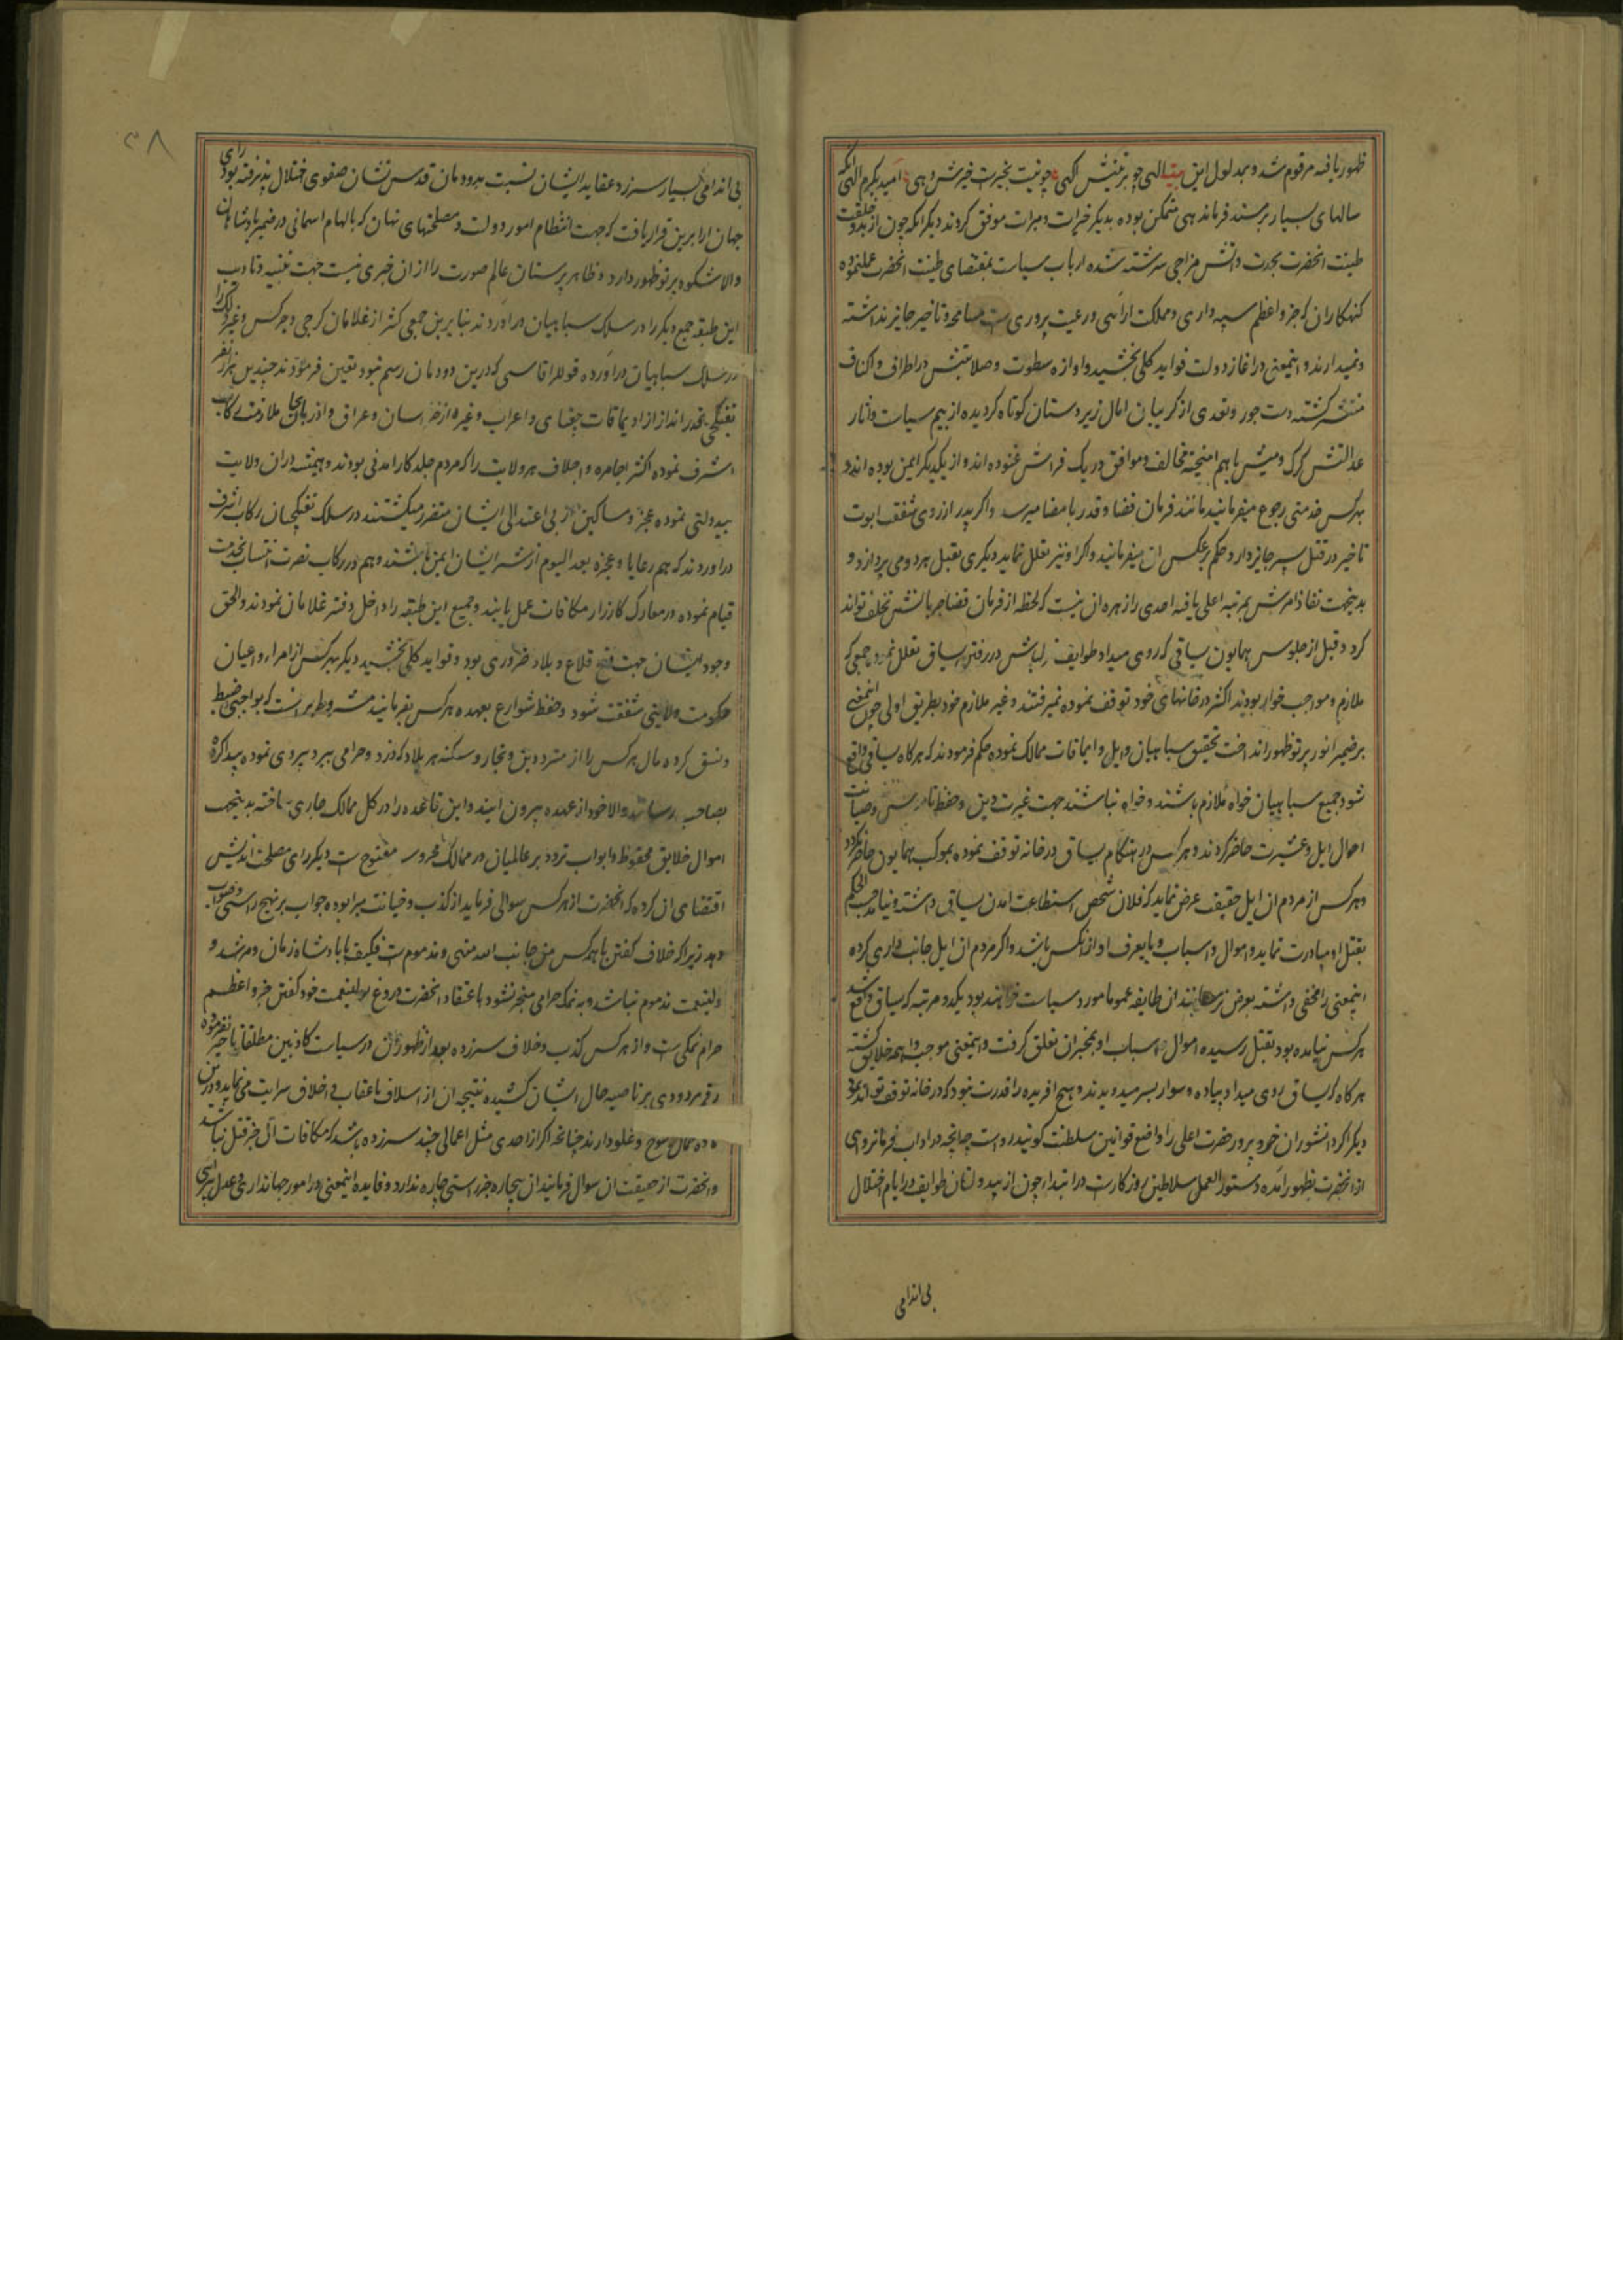 ظهور یافته مرقوم شد و بمدلول این بیت الهی چو بر تینتش آگهی چو نیت بخیرست خیرش دهی امید بکرم الهی آنکه
سالهای بسیار بر مسند فرماندهی متمکن بوده بدیکر خیرات و مبرات موفق کردند دیکر انکه چون از بدو خلقت
طینت انحضرت بحدت و آتش مزاجی سرشته شده ارباب سیاست بمقتضای طینت انحضرت عمل نموده
کنهکاران که جزو اعظم سپه داری و مملکت ارائی و رعیت پروری ست مسامحه و تاخیر جایز نداشته
و نمیدارند و اینمعنی در اغاز دولت فواید کلی بخشید و اوازه سطوت و صلابتش در اطراف و اکناف
منتشر کشته دست جور و تعدی از کریبان امال زیردستان کوتاه کردیده از بیم سیاست و آثار
عدالتش کرک و میش با هم امیخته مخالف و موافق در یک فراش غنوده اند و از یکدیکر ایمن بوده اند و
بهرکس خدمتی رجوع میفرمایند مانند فرمان قضا و قدر بامضا میرسد و اکر پدر از روی شفقت ابوت
تاخیر در قتل پسر جایز دارد حکم بر عکس ان میفرمایند و اکر او نیز تعلل نماید دیکری بقتل هر دو می پردازد و
بدینجهت نفاذ امرش بمرتبه اعلی یافته احدی را زهره ان نیست که لحظه از فرمان قضا جریانش تخلف تواند
کرد و قبل از جلوس همایون یساقی که روی میداد طوایف قزلباش در رفتن یساق تعلل نموده جمعی که
ملازم و مواجب خوار بودند اکثر در خانهای خود توقف نموده نمیرفتند و غیر ملازم خود بطریق اولی چون اینمعنی
بر ضمیر انور پرتو ظهور انداخت تحقیق سپاهیان و ایل و ایماقات ممالک نموده حکم فرمودند که هرکاه یساقی واقع
شود جمیع سپاهیان خواه ملازم باشند و خواه نباشند جهت غیرت دین و حفظ ناموس و صیانت
احوال ایل و عشیرت حاضر کردند و هر کس در هنکام یساق در خانه توقف نموده بموکب همایون حاضر نکردد
و هر کس از مردم ان ایل حقیقت عرض نماید که فلان شخص استطاعت امدن یساق داشته و نیامد حسب الحکم
بقتل او مبادرت نماید و اموال و اسباب و مایعرف او از آنکس باشد و اکر مردم ان ایل جانب داری کرده
اینمعنی را مخفی داشته بعرض نرسانند ان طایفه عموما مورد سیاست خواهند بود یکدو مرتبه که یساق واقع شد
هر کس نیامده بود بقتل رسیده اموال و اسباب او بمخبران تعلق کرفت و اینمعنی موجب واهمه خلایق کشته
هر کاه که یساق روی میداد پیاده و سوار بسر میدویدند و هیچ افریده را قدرت نبود که در خانه توقف تواند نمود
دیکر اکر دانشوران خرد پرور حضرت اعلی را واضع قوانین سلطنت کویند رواست چنانچه در اداب فرمانروائی
از انحضرت بظهور آمده دستور العمل سلاطین روزکارست در ابتدا چون از بیدولتان طوایف در ایام اختلال
بی اندامی
۳۸
بی اندامی بسیار سرزد و عقاید ایشان نسبت بدودمان قدس نشان صفوی اختلال پذیرفته بود رای
جهان ارا برین قرار یافت که جهت انتظام امور دولت و مصلحتهای نهان که بالهام اسمانی در ضمیر پادشاهان
والا شکوه پرتو ظهور دارد و ظاهر پرستان عالم صورت را از ان خبری نیست جهت تنبیه و تادیب
این طبقه جمع دیکر را در سلک سپاهیان دراوردند بنا برین جمعی کثیر از غلامان کرجی و چرکس و غیره
در سلک سپاهیان دراورده قوللراقاسی که درین دودمان رسم نبود تعیین فرمودند چندین هزار نفر
تفنکچی قدرانداز از اویماقات جغتای و اعراب و غیره از خراسان و عراق و اذربایجان ملازمت رکاب
اشرف نموده اکثر اجامره و اجلاف هر ولایت را که مردم جلد کارامدنی بودند و همیشه در ان ولایت
بیدولتی نموده عجزه و مساکین از بی اعتدالی ایشان متضرر میکشتند در سلک تفنکچیان رکاب اشرف
دراوردند که هم رعایا و عجزه بعد الیوم از شر ایشان ایمن باشند و هم در رکاب نصرت انتساب بخدمت
قیام نموده در معارک کارزار مکافات عمل یابند و جمیع این طبقه را داخل دفتر غلامان نمودند و الحق
وجود ایشان جهت فتح قلاع و بلاد ضروری بود و فواید کلی بخشید دیکر بهر کس از امراء و اعیان
حکومت ولایتی شفقت شود و حفظ شوارع بعهده هر کس بفرمایند مشروط برانست که بواجبی ضبط
و نسق کرده مال هر کس را از مترددین و تجار و سکنه هر بلاد که دزد و حرامی ببرد پیروی نموده پیدا کرده
بصاحب رساند و الا خود از عهده بیرون ایند و این قاعده را در کل ممالک جاری ساخته بدینجهت
اموال خلایق محفوظ و ابواب تردد بر عالمیان در ممالک محروسه مفتوح ست دیکر رای مصلحت اندیش
اقتضای ان کرده که انحضرت از هر کس سوالی فرماید از کذب و خیانت مبرا بوده جواب بر نهج راستی و صواب
دهد زیرا که خلاف کفتن با همه کس من جانب الله منهی و مذموم ست فکیف با پادشاه زمان و مرشد و
ولینعمت مذموم نباشد و به نمک حرامی منجر نشود باعتقاد انحضرت دروغ بولینعمت خود کفتن جزو اعظم
حرام نمکی ست و از هر کس کذب و خلاف سرزده بعد از ظهور ان در سیاست کاذبین مطلقا تاخیر نفرموده
رقم مردودی بر ناصیه حال ایشان کشیده نتیجه ان از اسلاف باعقاب و اخلاف سرایت می نماید و درین
ماده کمال رسوخ و غلو دارند چنانچه اکر از احدی مثل اعمالی چند سرزده باشد که مکافات آن جز قتل نباشد
و انحضرت از حقیقت ان سوال فرمایند ان بیچاره جز راستی چاره ندارد و فایده اینمعنی در امور جهانداری و عدل پیرائی